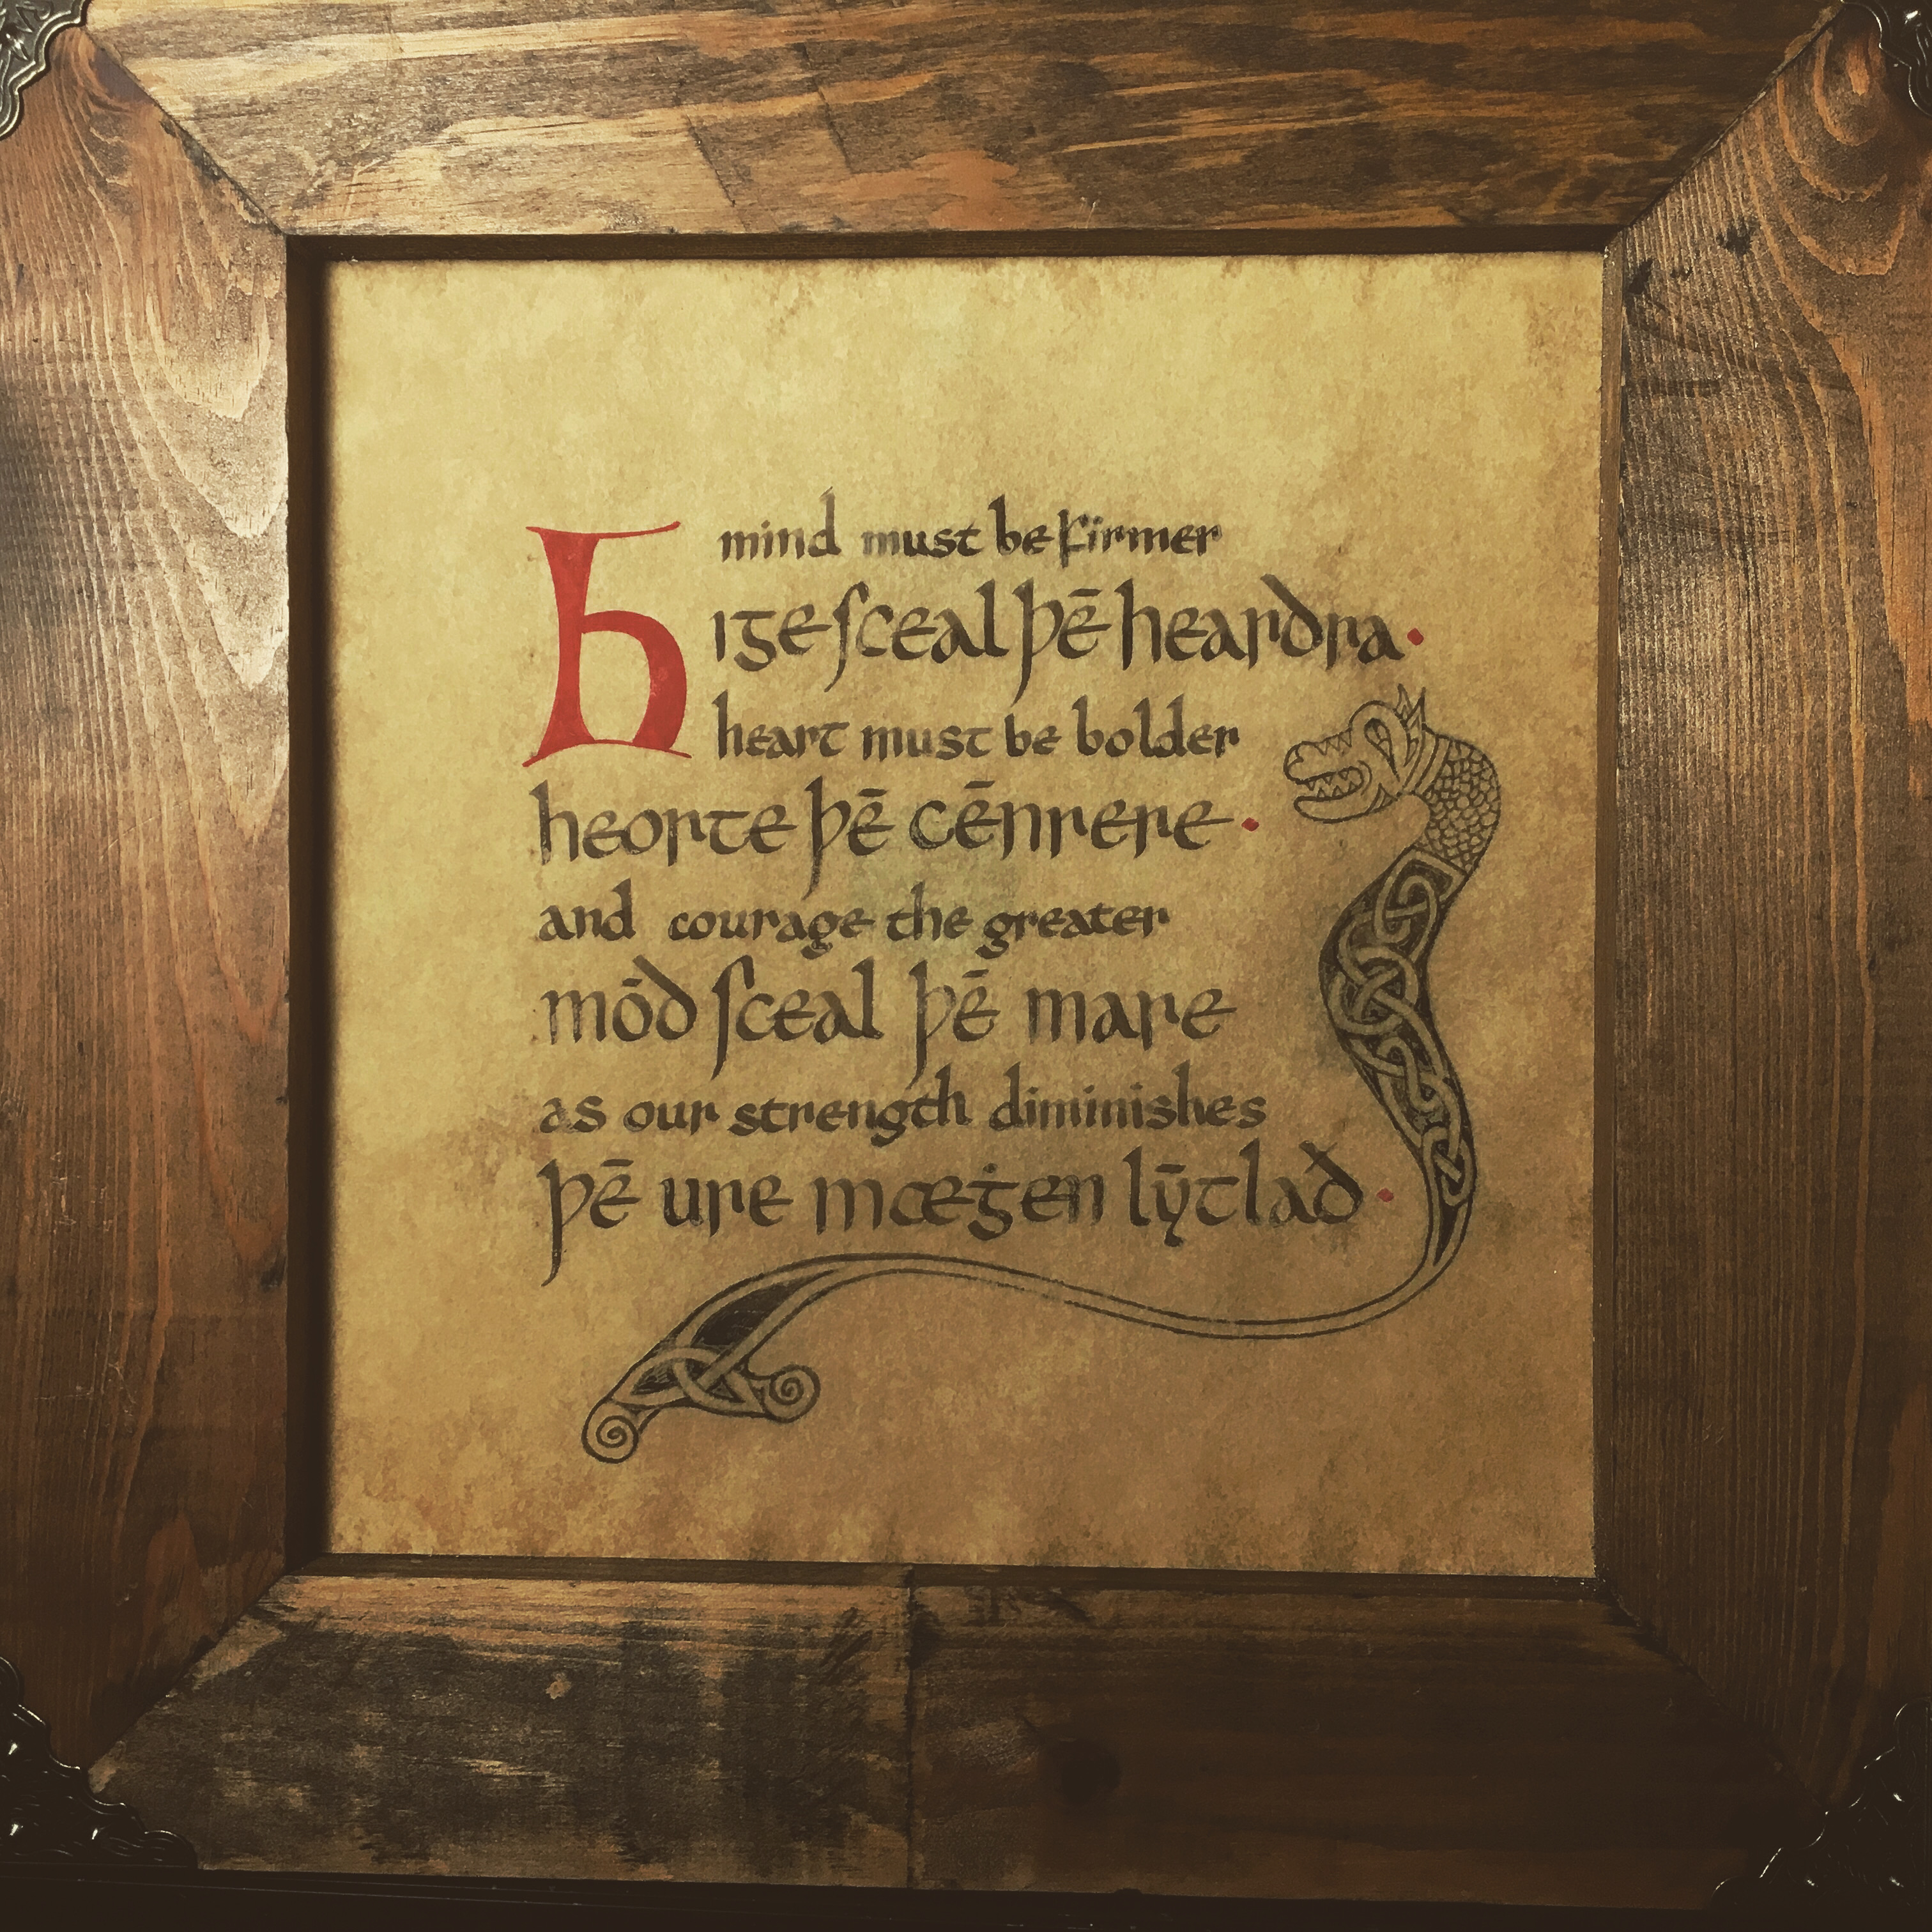 mind must be firmer
hiġe sceal þē heardra.
heart must be bolder
heorte þē cēnrere.
and courage the greater
mōd sceal þē mare
as our strength diminishes
þē ure mœġen lȳtlað.